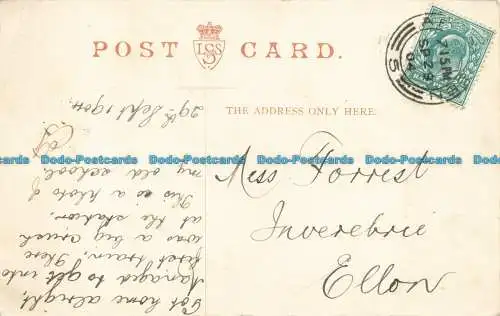 POST CARD.
LSS
THE ADDRESS ONLY HERE.
Miss Forrest
Inverebrie
Ellon
29th Sept 1904.
Got home alright,
managed to get into
first train. There
was a big crush
at the station.
This is a photo of
my old school.
7 15 PM
SP 29
04
5
Dodo-Postcards Dodo-Postcards Dodo-Postcards Dodo-Postcards Dodo-Postcards Dodo-Postcards